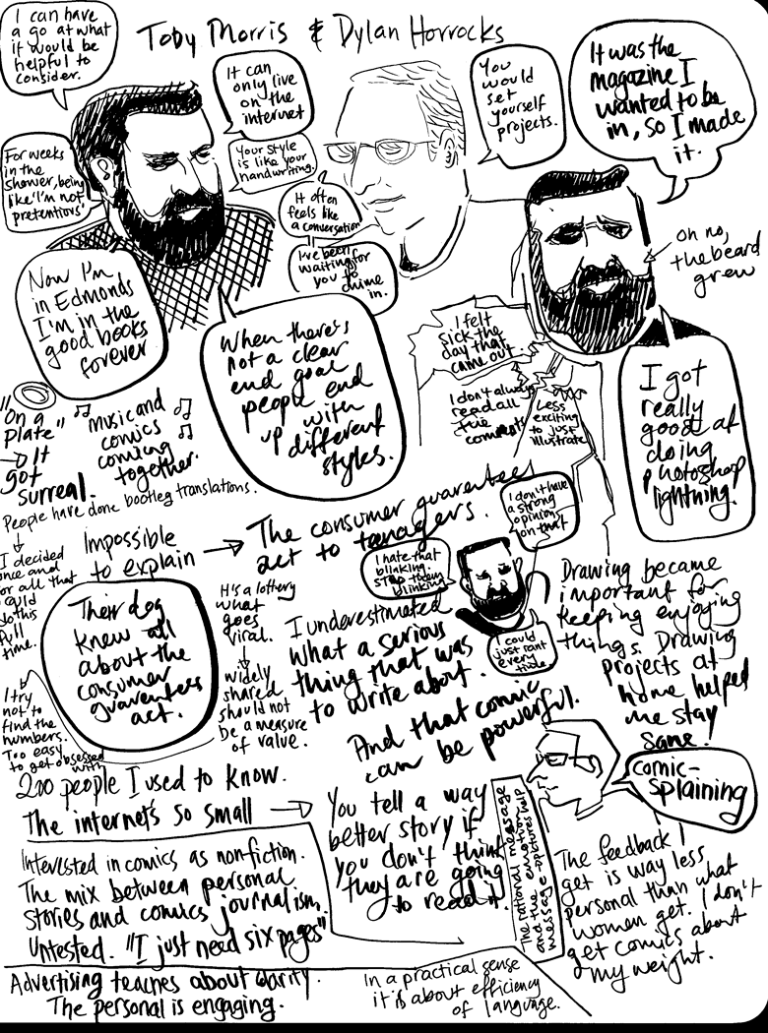 Toby Morris & Dylan Horrocks
I can have
a go at what
it would be
helpful to
consider.
It can
only live
on the
internet
You
would
set
yourself
projects.
It was the
magazine I
wanted to be
in, so I made
it.
For weeks
in the
shower, being
like 'I'm not
pretentious'
Your style
is like your
handwriting.
It often
feels like
a conversation
I've been
waiting for
you to
chime in.
Oh no,
the beard
grew
Now I'm
in Edmonds
I'm in the
good books
forever
When there's
not a clear
end goal
people end
up with
different
styles.
I felt
sick the
day that
came out.
I don't always
read all
the comments
Less
exciting
to just
illustrate
I got
really
good at
doing
photoshop
lightning.
"On a
plate"
→ It
got
surreal.
Music and
comics
coming
together.
People have done bootleg translations.
I decided
once and
for all that
I could
do this
full
time.
Impossible
to explain →
The consumer guarentees
act to teenagers.
I don't have
a strong
opinion
on that
I hate that
blinking.
Stop them
blinking
I could
just rant
every
time
Their dog
knew all
about the
consumer
guarentees
act.
It's a lottery
what
goes
viral.
widely
shared
should not
be a measure
of value.
I underestimated
what a serious
thing that was
to write about.
And that comic
can be powerful.
Drawing became
important for
keeping enjoying
things. Drawing
projects at
home helped
me stay
sane!
I try
not to
find the
numbers.
Too easy
to get obsessed
with
200 people I used to know.
The internet's so small →
You tell a way
better story if
you don't think
they are going
to read it.
The rational message
and the emotional
message
comic-
splaining
Interested in comics as non-fiction.
The mix between personal
stories and comics journalism.
Untested. "I just need six pages".
The feedback I
get is way less
personal than what
women get. I don't
get comics about
my weight.
Advertising teaches about clarity.
The personal is engaging.
In a practical sense
it is about efficiency
of language.